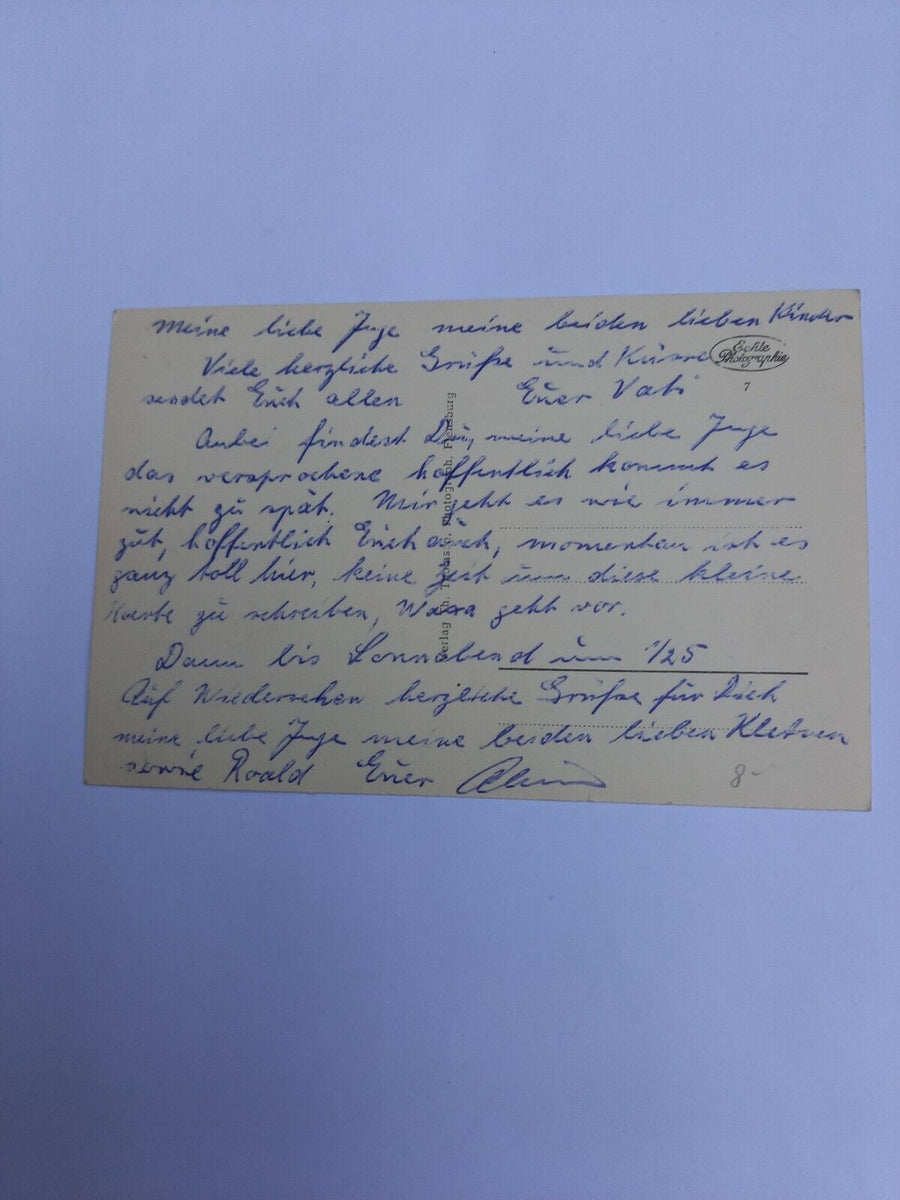 Meine liebe Inge meine beiden lieben Kinder
Viele herzliche Grüße und Küsse
sendet Euch allen Euer Vati
Echte
Photographie
7
Anbei findest Du, meine liebe Inge
das versprochene hoffentlich kommt es
nicht zu spät. Mir geht es wie immer
gut, hoffentlich Euch auch, momentan ist es
ganz toll hier, keine Zeit um diese kleine
Karte zu schreiben, geht vor.
Dann bis Sonnabend um 1/25
Auf Wiedersehen herzliche Grüße für Dich
meine liebe Inge meine beiden lieben Kleinen
sowie Roald Euer
8-
Verlag Th. Photograph, Flensburg